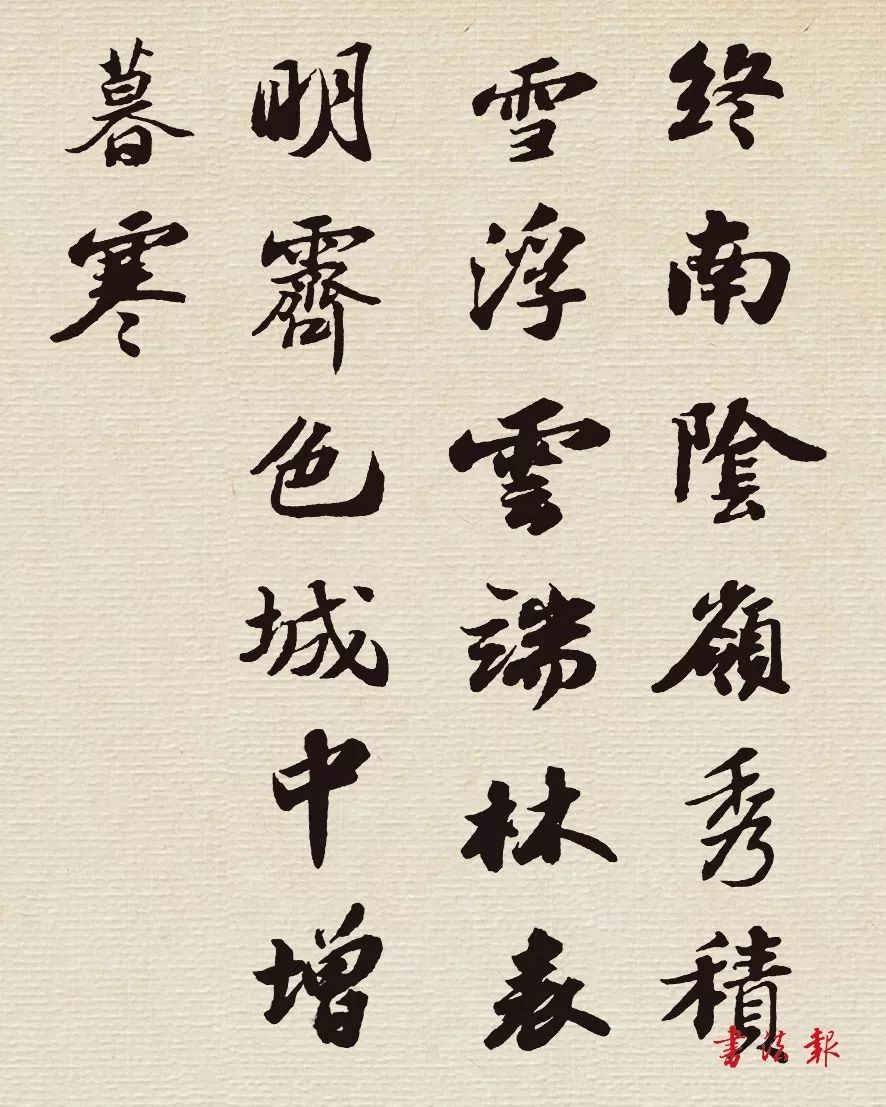 終南陰嶺秀積
雪浮雲端林表
明霽色城中增
暮寒
書法報